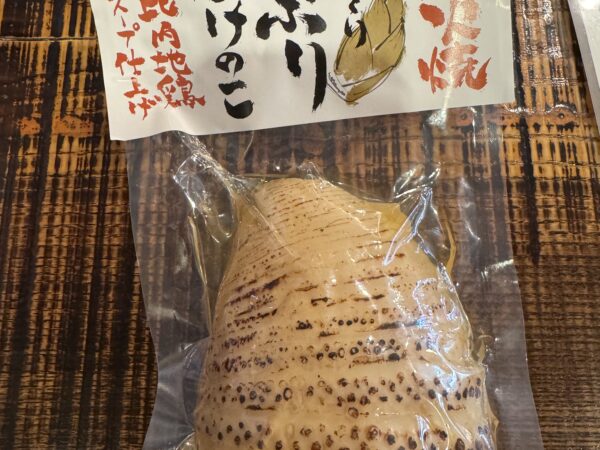 焼
ぷり
けのこ
比内地鶏
スープ仕上げ